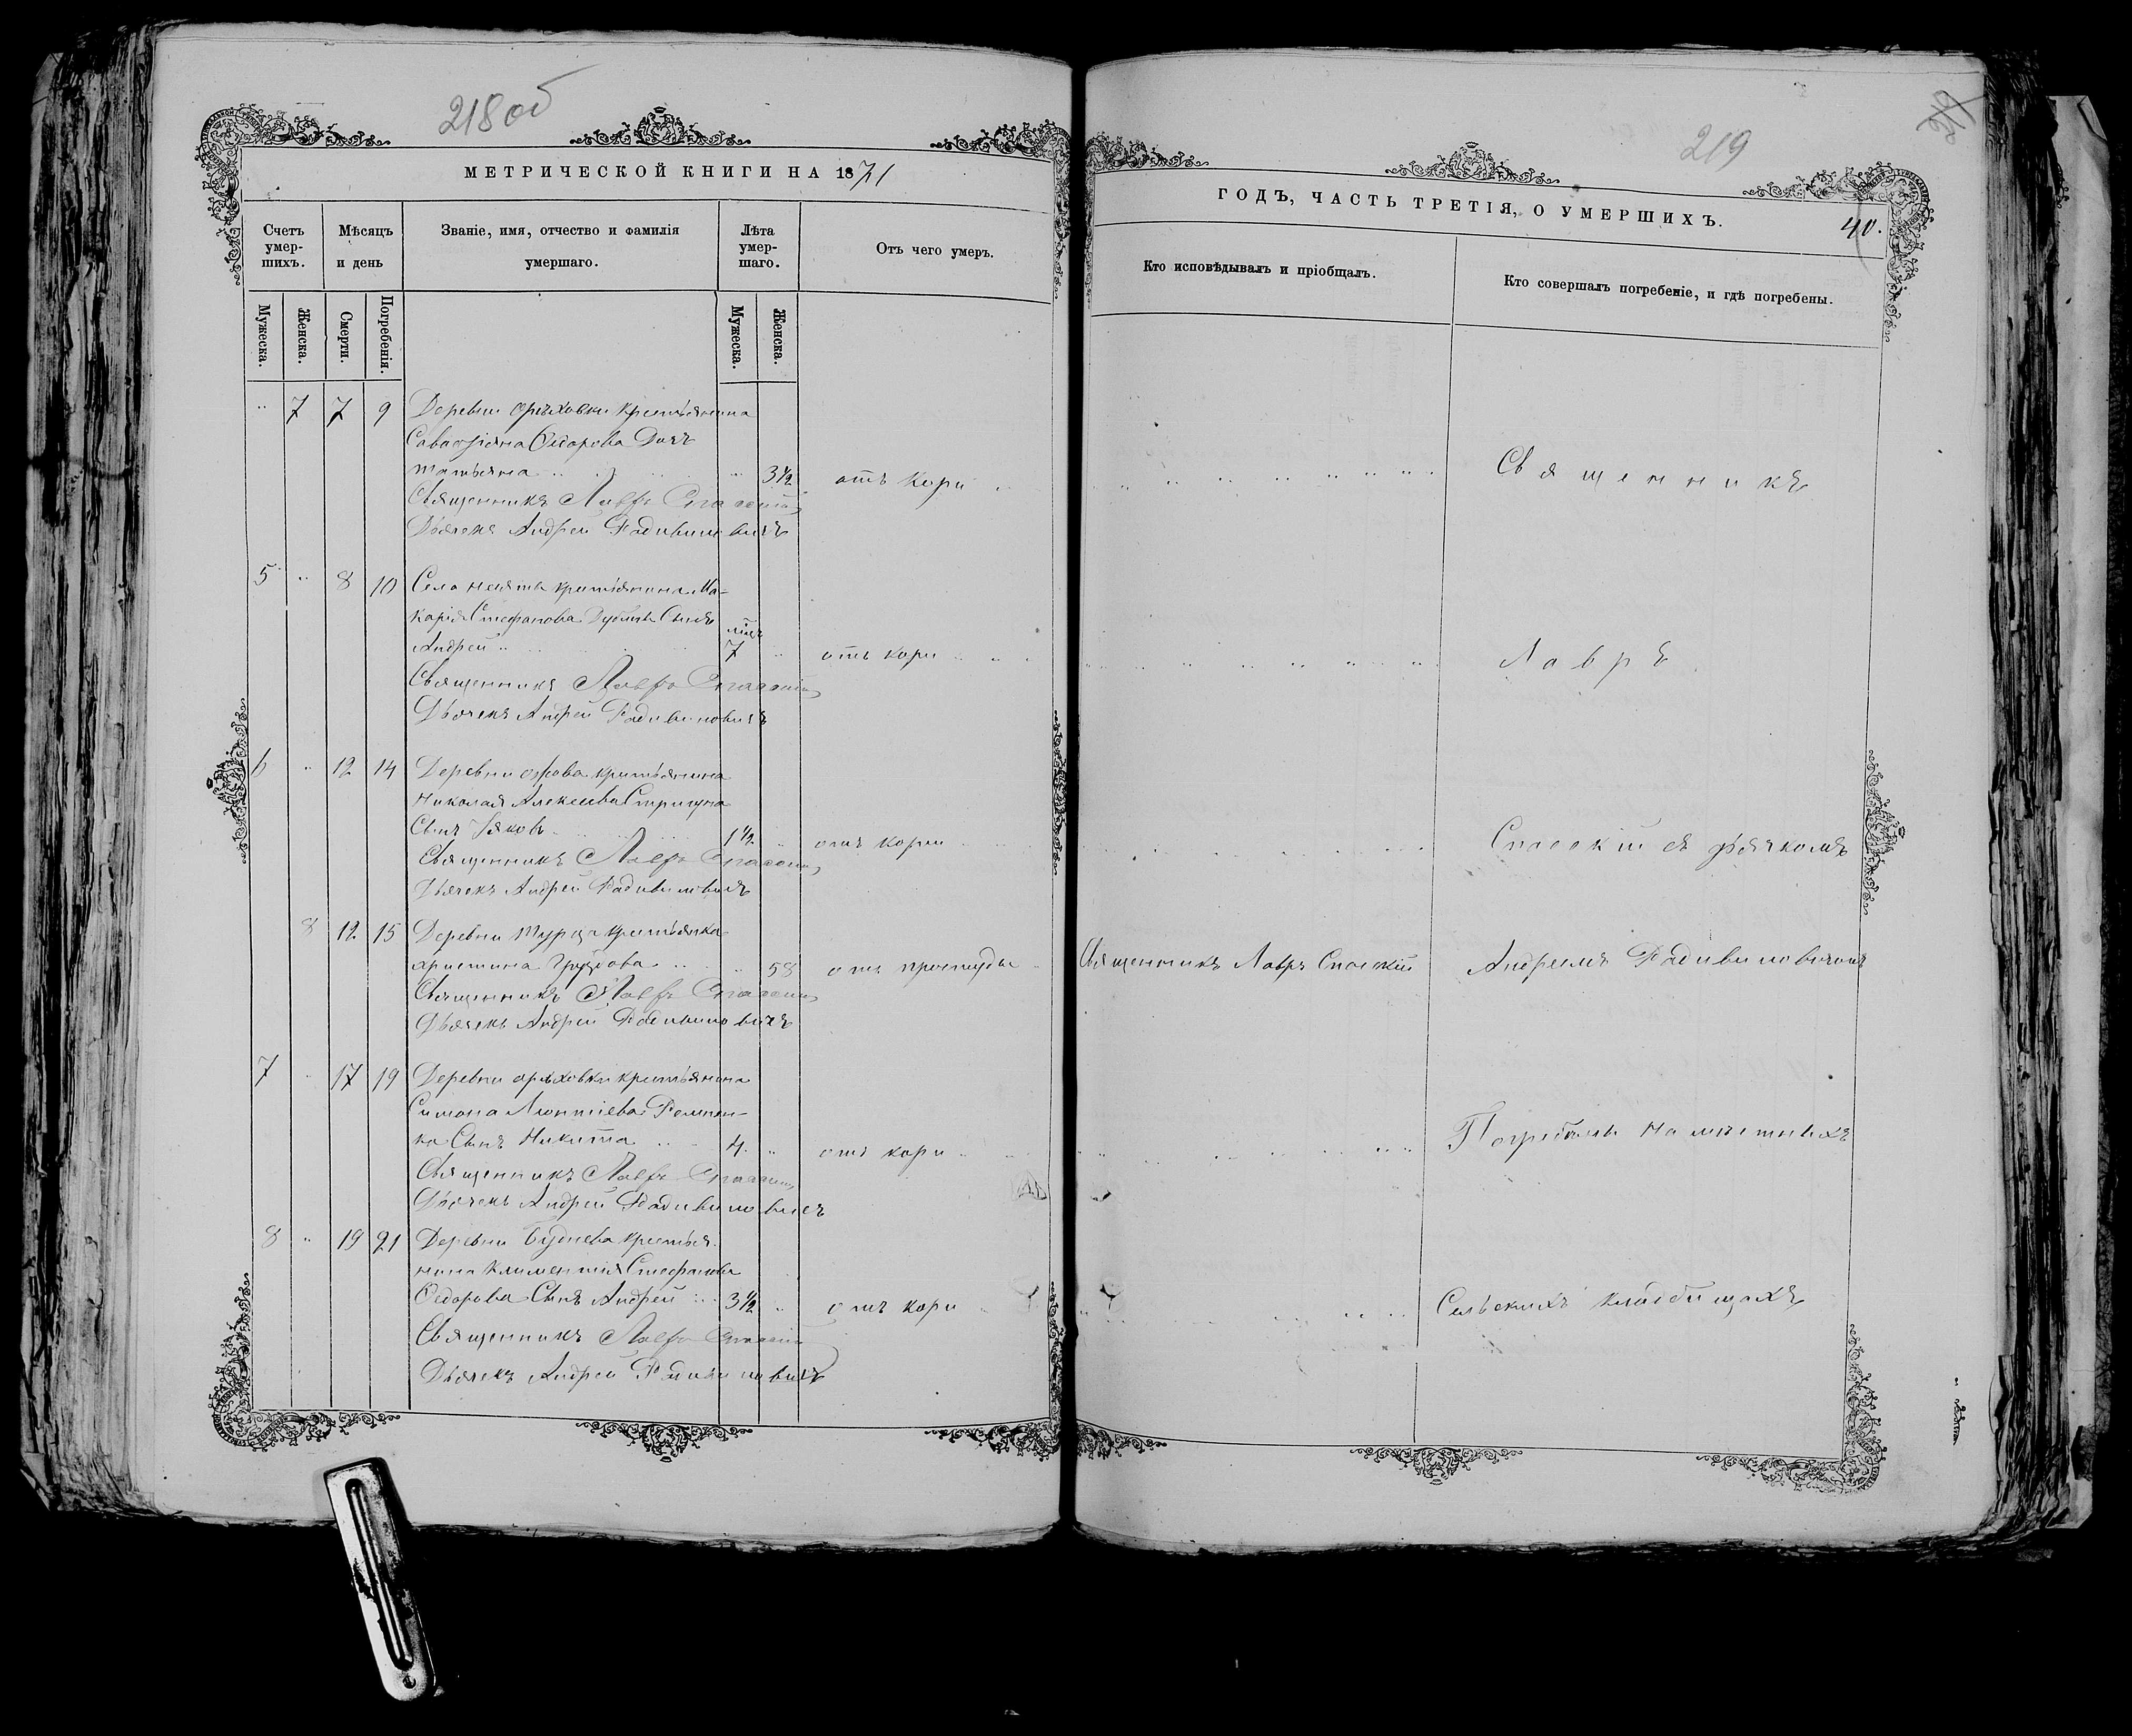 218 об
МЕТРИЧЕСКОЙ КНИГИ НА 1871
Счетъ умер-шихъ.
Мѣсяцъ и день
Званіе, имя, отчество и фамилія умершаго.
Лѣта умер-шаго.
Отъ чего умеръ.
Мужеска.
Женска.
Смерти.
Погребенія.
Мужеска.
Женска.
" 7 7 9 Деревни Орѣховки крестьянина
Савастіяна Сидорова Дочь
Татьяна " 3½ отъ кори
Священникъ Лавръ Спасскій
Дьячекъ Андрей Радивиновичъ
5 " 8 10 Села крестьянина Ма-
карія Стефанова Сынъ
Андрей мѣс. 7 " отъ кори
Священникъ Лавръ Спасскій
Дьячекъ Андрей Радивиновичъ
6 " 12 14 Деревни крестьянина
Николая Алексеева Стригуна
Сынъ Іаковъ 1½ " отъ кори
Священникъ Лавръ Спасскій
Дьячекъ Андрей Радивиновичъ
8 12 15 Деревни крестьянка
Христина " 58 отъ простуды
Священникъ Лавръ Спасскій
Дьячекъ Андрей Радивиновичъ
7 " 17 19 Деревни Орѣховки крестьянина
Симона Леонтіева
Сынъ Никита 4 " отъ кори
Священникъ Лавръ Спасскій
Дьячекъ Андрей Радивиновичъ
8 " 19 21 Деревни крестья-
нина Климентія Стефанова
Ѳедорова Сынъ Андрей 3½ " отъ кори
Священникъ Лавръ Спасскій
Дьячекъ Андрей Радивиновичъ
219
219
ГОДЪ, ЧАСТЬ ТРЕТІЯ, О УМЕРШИХЪ.
40.
Кто исповѣдывалъ и пріобщалъ.
Кто совершалъ погребеніе, и гдѣ погребены.
Священникъ
Лавръ
Спасскій съ дьячкомъ
Священникъ Лавръ Спасскій
Андреемъ Радивиновичомъ
Погребены на мѣстныхъ
Сельскихъ кладбищахъ